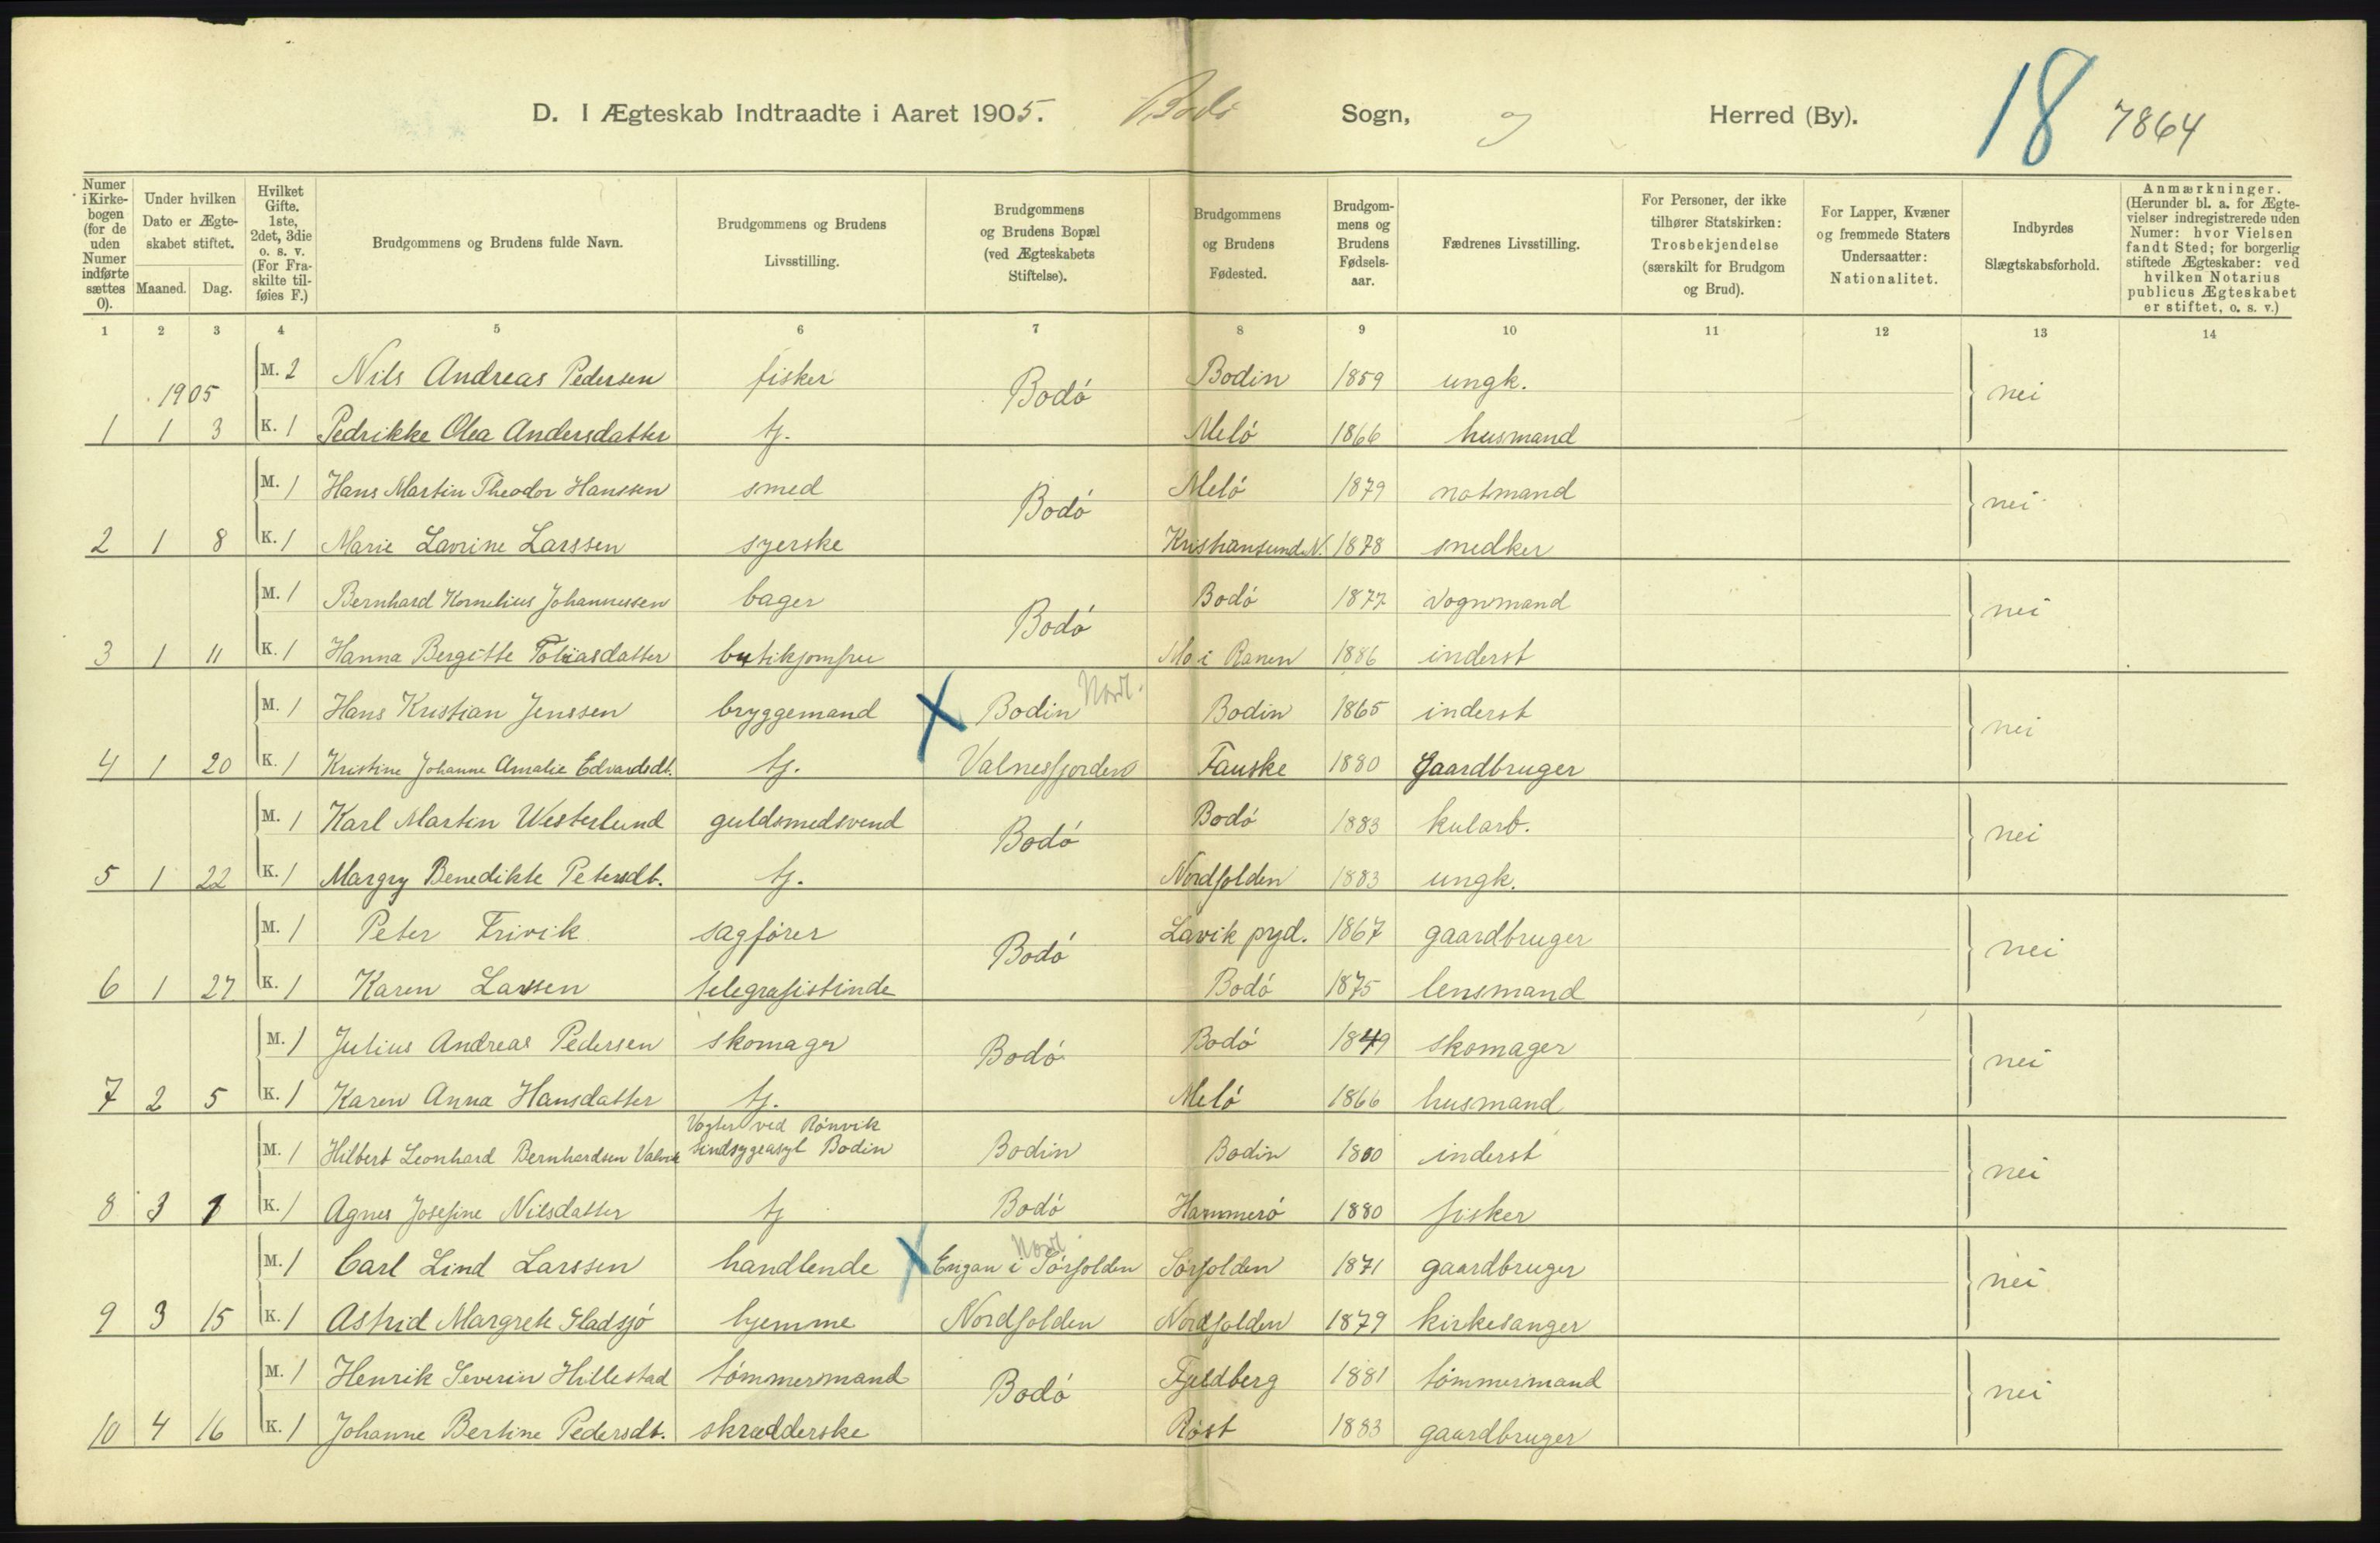 D. I Ægteskab Indtraadte i Aaret 1905. Bodø Sogn, Herred (By). 18 7864
Numer i Kirkebogen (for de uden Numer indførte sættes 0).
Under hvilken Dato er Ægteskabet stiftet.
Maaned. Dag.
Hvilket Gifte. 1ste, 2det, 3die o. s. v. (For Fraskilte tilføies F.)
Brudgommens og Brudens fulde Navn.
Brudgommens og Brudens Livsstilling.
Brudgommens og Brudens Bopæl (ved Ægteskabets Stiftelse).
Brudgommens og Brudens Fødested.
Brudgommens og Brudens Fødselsaar.
Fædrenes Livsstilling.
For Personer, der ikke tilhører Statskirken: Trosbekjendelse (særskilt for Brudgom og Brud).
For Lapper, Kvæner og fremmede Staters Undersaatter: Nationalitet.
Indbyrdes Slægtskabsforhold.
Anmærkninger. (Herunder bl. a. for Ægtevielser indregistrerede uden Numer: hvor Vielsen fandt Sted; for borgerlig stiftede Ægteskaber: ved hvilken Notarius publicus Ægteskabet er stiftet, o. s. v.)
1 2 3 4 5 6 7 8 9 10 11 12 13 14
1905
M. 2 Nils Andreas Pedersen fisker Bodø Bodin 1859 ungk. nei
1 1 3 K. 1 Pedrikke Olea Andersdatter tj. Melø 1866 husmand
M. 1 Hans Martin Theodor Hanssen smed Bodø Melø 1879 notmand nei
2 1 8 K. 1 Marie Lavrine Larssen syerske Kristiansund N. 1878 snedker
M. 1 Bernhard Kornelius Johannessen bager Bodø Bodø 1877 vognmand nei
3 1 11 K. 1 Hanna Bergitte Tobiasdatter butikjomfru Mo i Ranen 1886 inderst
M. 1 Hans Kristian Jenssen bryggemand X Bodin Nordl. Bodin 1865 inderst nei
4 1 20 K. 1 Kristine Johanne Amalie Edvardsdt. tj. Valnesfjorden Fauske 1880 gaardbruger
M. 1 Karl Martin Westerlund guldsmedsvend Bodø Bodø 1883 kularb. nei
5 1 22 K. 1 Margry Benedikte Petersdt. tj. Nordfolden 1883 ungk.
M. 1 Peter Trivik sagfører Bodø Lavik pgd. 1867 gaardbruger nei
6 1 27 K. 1 Karen Larssen telegrafistinde Bodø 1875 lensmand
M. 1 Julius Andreas Pedersen skomager Bodø Bodø 1849 skomager nei
7 2 5 K. 1 Karen Anna Hansdatter tj. Melø 1866 husmand
Vogter ved Rønvik
M. 1 Hilbert Leonhard Bernhardsen Valvik sindsygeasyl Bodin Bodin Bodin 1880 inderst nei
8 3 1 K. 1 Agnes Josefine Nilsdatter tj Bodø Hammerø 1880 fisker
M. 1 Carl Lind Larssen handlende X Engan i Sørfolden Nordl. Sørfolden 1871 gaardbruger nei
9 3 15 K. 1 Astrid Margrete Gladsjø hjemme Nordfolden Nordfolden 1879 kirkesanger
M. 1 Henrik Severin Hillestad tømmermand Bodø Fjeldberg 1881 tømmermand nei
10 4 16 K. 1 Johanne Bertine Pedersdt. skrædderske Røst 1883 gaardbruger